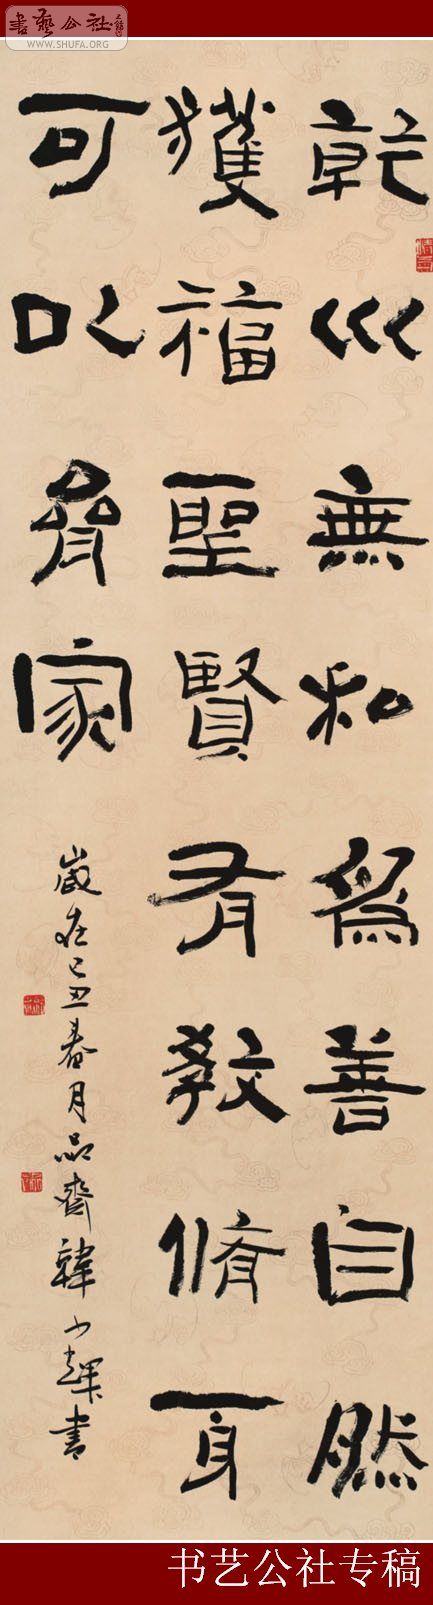 書藝公社
WWW.SHUFA.ORG
乾巛無私爲善自然
獲福聖賢有教脩身
可以齊家
歲在己丑春月品齋韓少輝書
书艺公社专稿